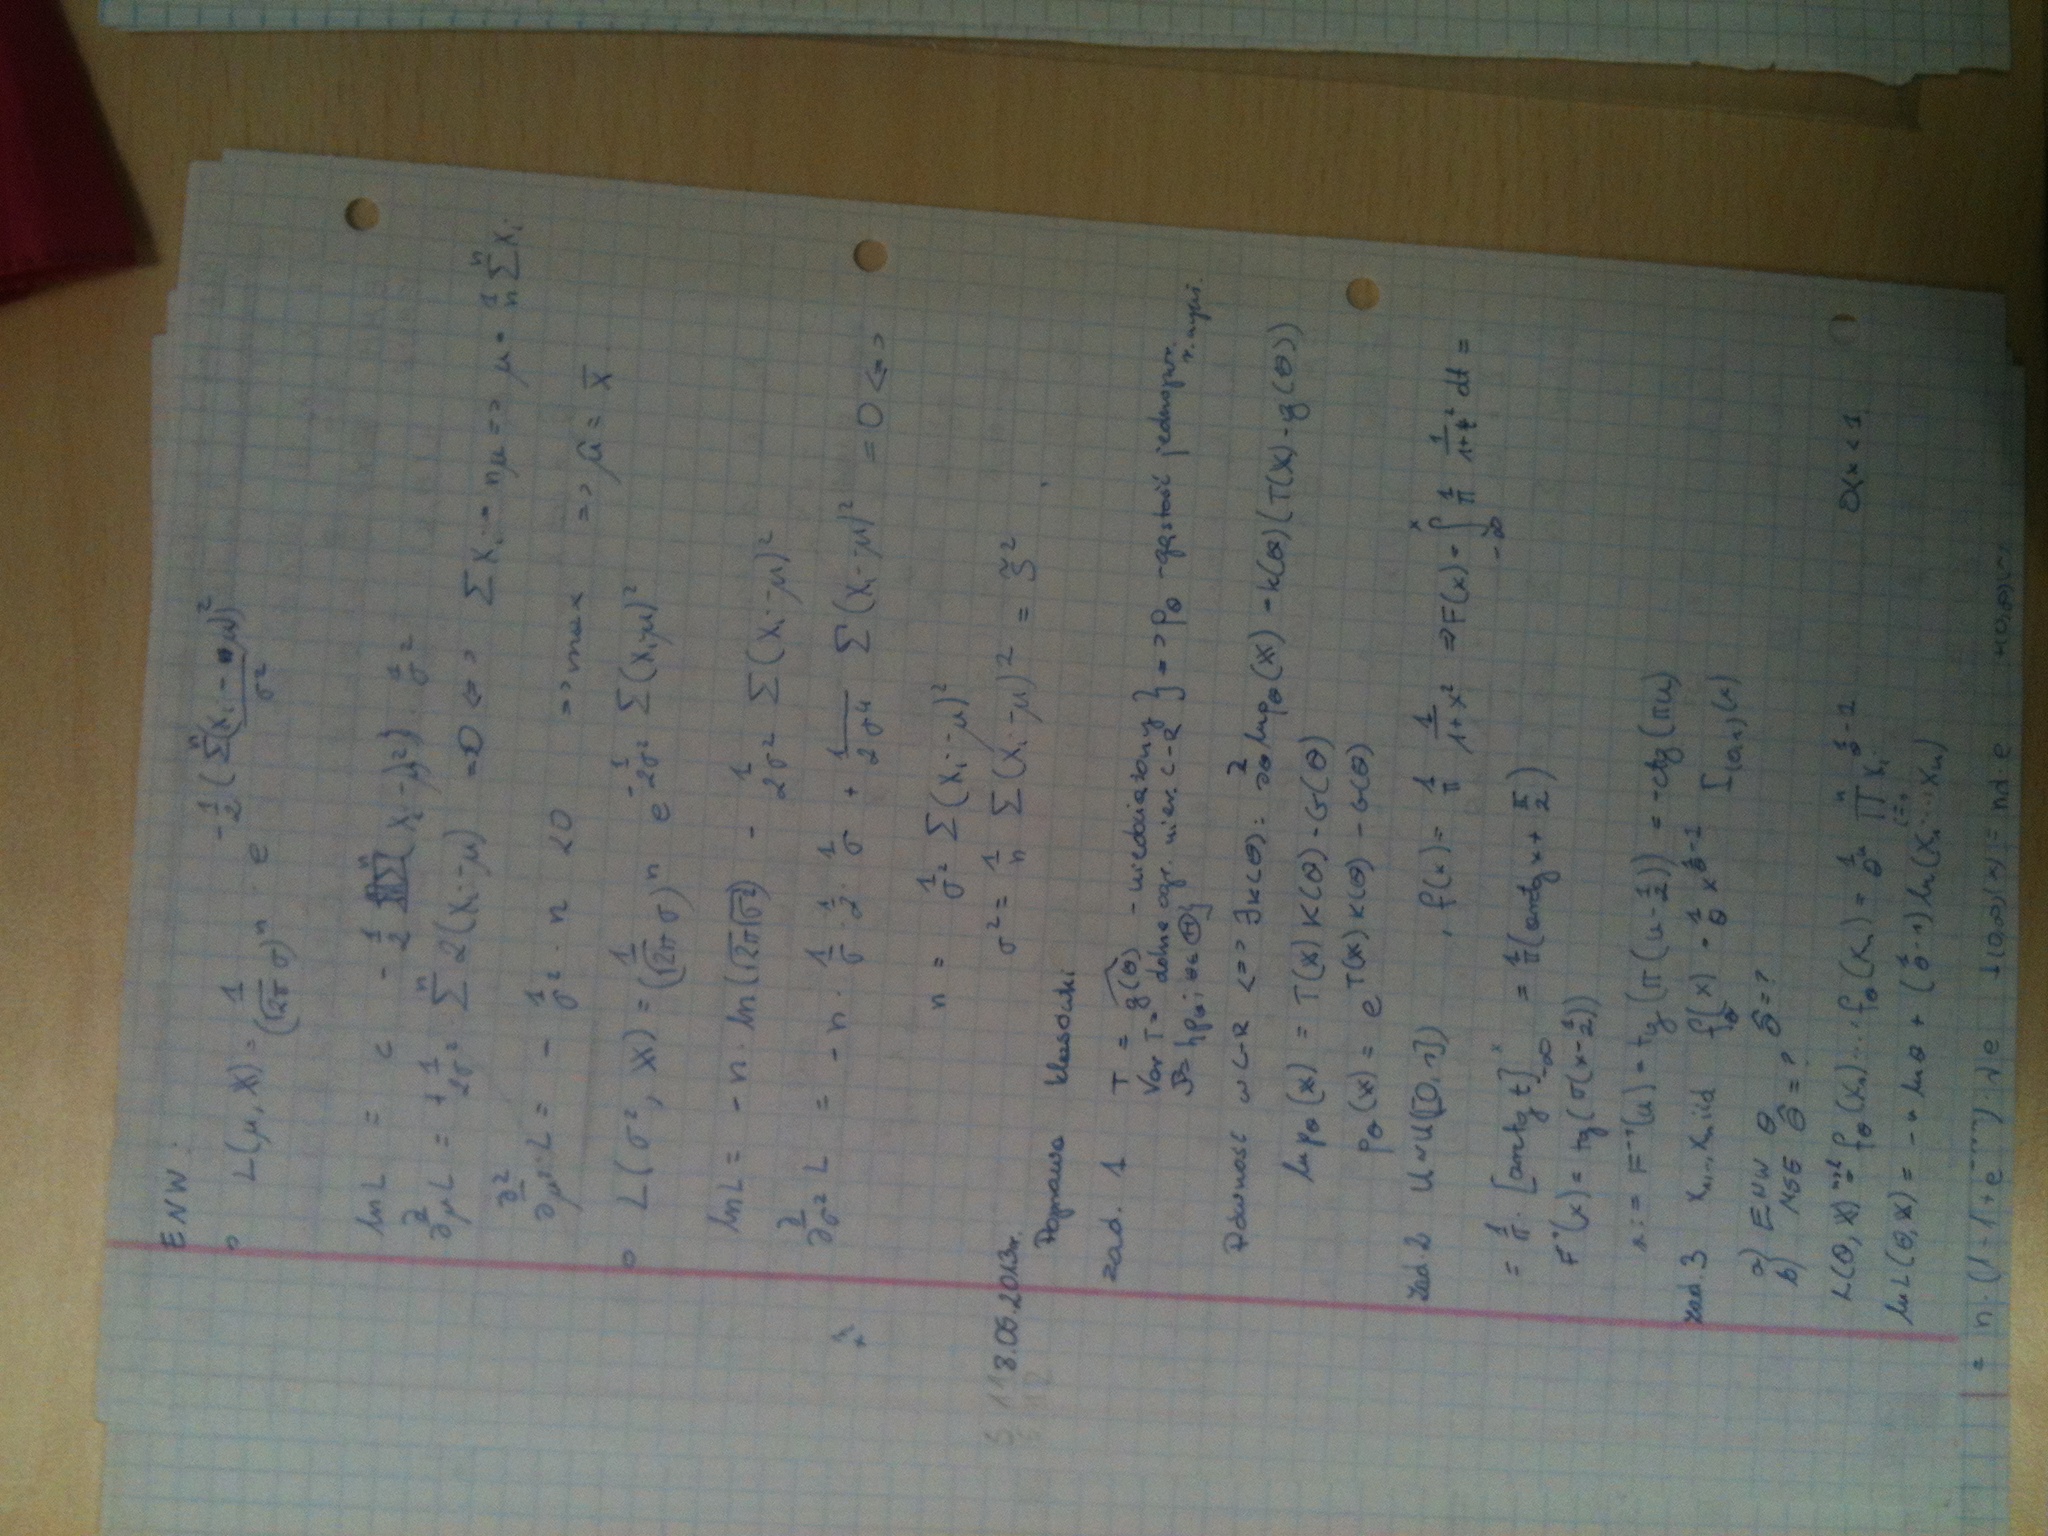 ENW:
L(μ, X) = 1/(√2π σ)^n · e^{-1/2 (Σ^n(Xi - μ))²/σ²}
ln L = c - 1/2 Σ^n (Xi - μ)²) · 1/σ²
∂/∂μ L = + 1/2σ² · Σ^n 2(Xi - μ) = 0 <=> Σ Xi = nμ => μ = 1/n Σ^n Xi
∂²/∂μ² L = - 1/σ² · n < 0 => max => μ̂ = X̄
L(σ², X) = 1/(√2π σ)^n e^{-1/2σ² Σ(Xi-μ)²}
ln L = -n · ln(√2π√σ²) - 1/2σ² Σ(Xi-μ)²
∂/∂σ² L = -n · 1/σ · 1/2 · 1/σ + 1/2σ⁴ Σ(Xi-μ)² = 0 <=>
n = 1/σ² Σ(Xi-μ)²
σ² = 1/n Σ(Xi-μ)² = S̃²
8.05.2013r.
Poprawa klasówki
zad. 1 T = ĝ(θ) - nieobciążony
Var T = dolne ogr. nier. C-R } => pθ - gęstość jednopar. r. wykł.
P = {pθ; θ∈Θ}
Równość w C-R <=> ∃K(θ): ∂/∂θ ln pθ(X) = k(θ)(T(X) - g(θ))
ln pθ(x) = T(x) K(θ) - G(θ)
pθ(x) = e^{T(x) K(θ) - G(θ)}
zad. 2 U ~ U([0,1]) , f(x) = 1/π 1/(1+x²) => F(x) = ∫_{-∞}^{x} 1/π 1/(1+t²) dt =
= 1/π · [arctg t]_{-∞}^{x} = 1/π (arctg x + π/2)
F⁻¹(x) = tg(π(x-1/2))
:= F⁻¹(u) = tg(π(u-1/2)) = -ctg(πu)
zad. 3 X1,..,Xn iid fθ(x) = 1/θ x^{1/θ - 1} I(0,1)(x)
a) ENW θ θ̂ = ?
b) MSE θ̂ = ?
L(θ, X) = fθ(X1) · ... · fθ(Xn) = 1/θ^n ∏_{i=1}^{n} Xi^{1/θ - 1} 0<x<1
ln L(θ, X) = -n ln θ + (1/θ - 1) ln(X1 · ... · Xn)